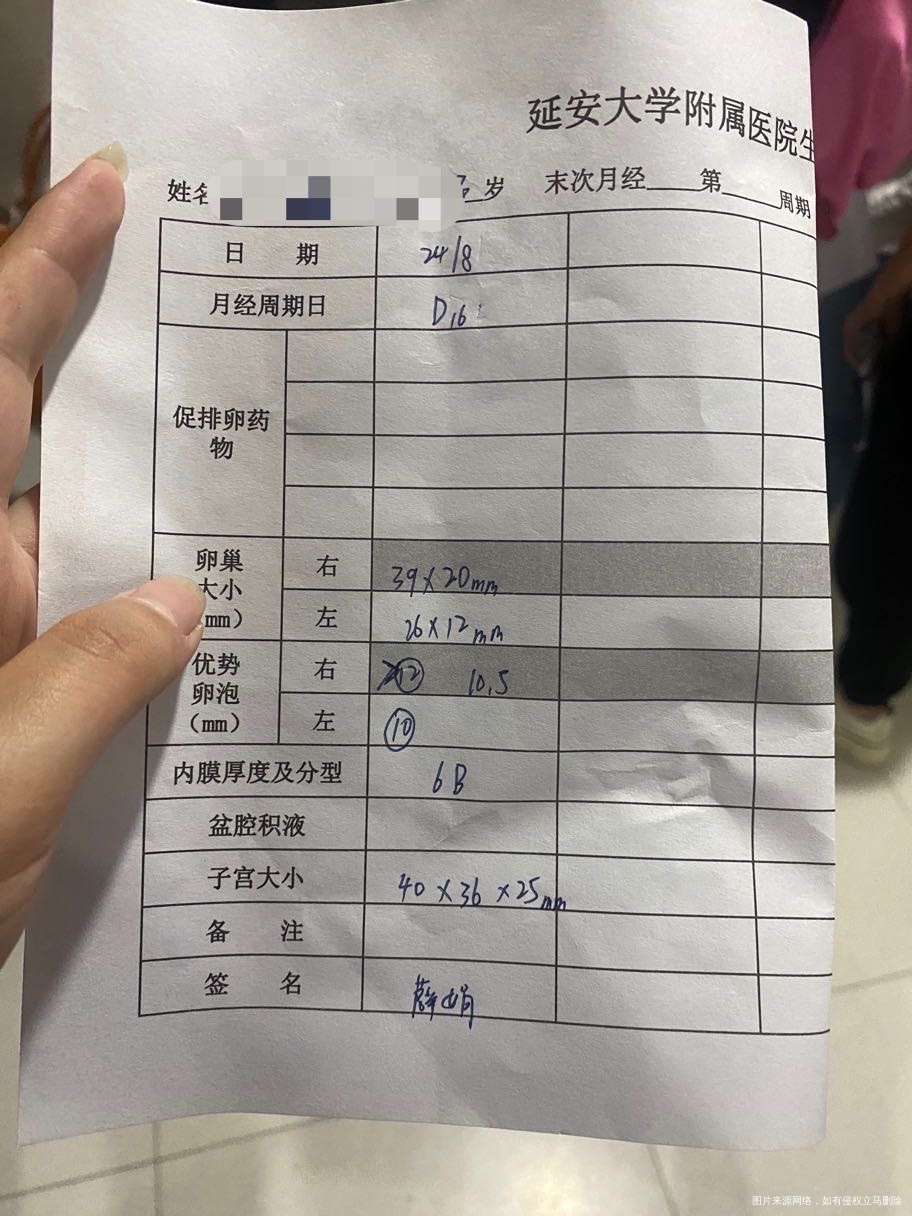 延安大学附属医院生
姓名 岁 末次月经____第____周期
日 期 24/8
月经周期日 D16
促排卵药
物
卵巢
大小
(mm)
右 39×20mm
左 26×12mm
优势
卵泡
(mm)
右 ⑫ 10.5
左 ⑩
内膜厚度及分型 6B
盆腔积液
子宫大小 40×36×25mm
备 注
签 名 薛娟
图片来源网络，如有侵权立马删除